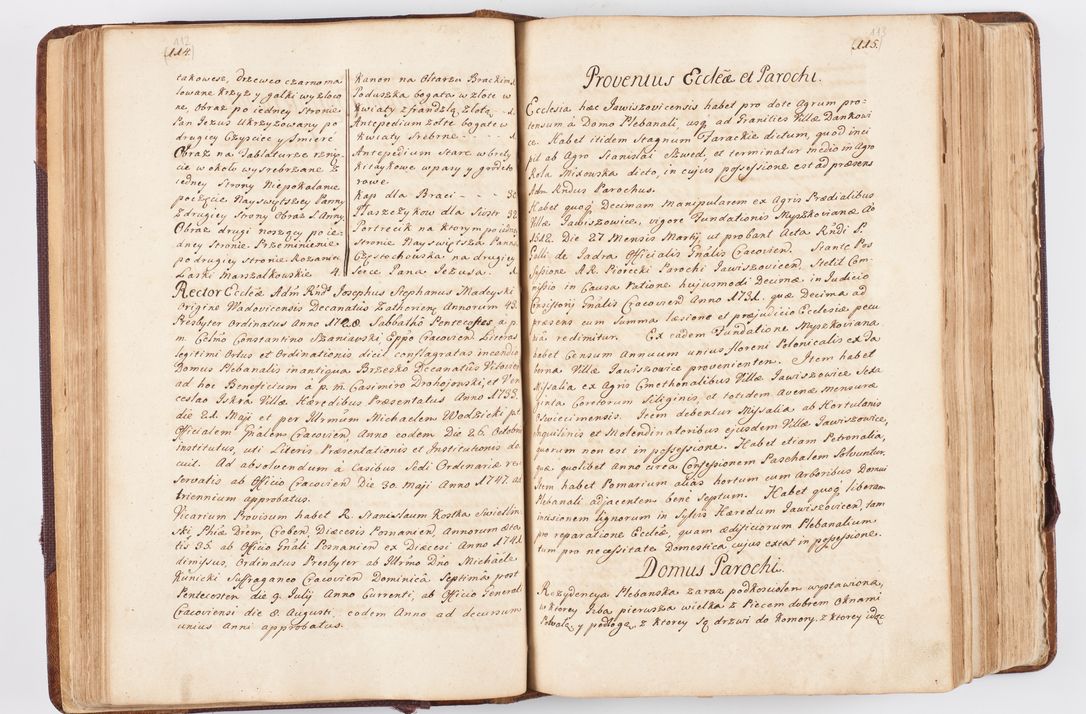 112
114.
takowesz, drzewco czarno ma
lowane krzyz y galki wyzłoco
ne, Obraz po iedney Stronie
Pan Jezus Ukrzyzowany po
drugiey Czyściec y Śmierć
Obraz na Tablaturze rzny
cie w około wysrebrzane z
iedney Strony Niepokalane
poczęcie Nayswiętszey Panny
z drugiey Strony Obraz S. Anny
Obraz drugi noszący po ie
dney Stronie Przemienienie
po drugiey stronie Rozaniec
Laski Marszałkowskie 4.
Kanon na Oltarzu Brackim 1
Poduszka bogata w złote w
kwiaty z frandzlą złotą - 1
Antepedium zołte bogate w
kwiaty Srebrne - 1
Antepedium Stare w bryty
kitaykowe w pasy y grodeto
rowe
Kap dla Braci - - 30
Płaszczykow dla Siostr 32
Portrecik na ktorym po iedney
stronie Nayswiętsza Panna
Częstochowska na drugiey
Serce Pana Jezusa. 1
Rector Ecclēæ Adm Rnds Josephus Stephanus Madeyski
Origine Wadovicensis Decanatus Zathorien, Annorum 43.
Presbyter Ordinatus Anno 1728 Sabbathō Pentecostes à p.
m. Celmo Constantino Szaniawski Eppō Cracovien Literas
legitimi Ortus et Ordinationis dicit conflagratas incendio
Domus Plebanalis in antiqua Brzesko Decanatus Vitovien
ad hoc Beneficium à p. m. Casimiro Drohojowski, et Ven
ceslao Iskra Villæ Hæredibus Præsentatus Anno 1735.
die 21. Maji et per Illrmum Michaelem Wodzicki pst
Officialem Gnālem Cracovien Anno eodem Die 26. Octobris
institutus, uti Literis Præsentationis et Institutionis do
cuit. Ad absolvendum à Casibus Sedi Ordinariæ rese
servatis ab Officio Cracovien Die 30. Maji Anno 1747. ad
triennium approbatus.
Vicarium Provisum habet R. Stanislaum Kostka Swietlin
ski, Phiæ Drem, Croben, Diæcesis Posnanien, Annorum æta
tis 35. ab Officio Gnāli Posnanien ex Diæcesi Anno 1741
dimissus, Ordinatus Presbyter ab Illrmo Dño Michaële
Kunicki Suffraganeo Cracovien Dominica Septima post
Pentecosten die 9. Julij Anno Currenti, ab Officio Generali
Cracoviensi die 8. Augusti eodem Anno ad decursum
unius Anni approbatus.
113
115.
Provenius Ecclēæ et Parochi.
Ecclesia hæc Jawiszovicensis habet pro dote Agrum pro-
tensum à Domo Plebanali, usq ad Granities Villæ Dankowi
ce. Habet itidem Stagnum Farackie dictum, quod inci
pit ab Agro Stanislai Szwed, et terminatur medio in Agro
Rola Mikowska dicto, in cujus possessione est ad præsens
Adm Rndus Parochus.
Habet quoq Decimam Manipularem ex Agris Prædialibus
Villæ Jawiszowice, vigore Fundationis Myszkovianæ Ao
1512. Die 27 Mensis Martij, ut probant Acta Rndi P.
Galli de Jadra Officialis Gnālis Cracovien. Stante Pos
sessione A.R. Piorecki Parochi Jawiszovicen, Stetit Com-
missio in Causa Ratione hujusmodi Decimæ in Judicio
Consistorij Gnālis Cracovien Anno 1731. quæ Decima ad
præsens cum Summa læsione et præjudicio Ecclesiæ pecu
niâ redimitur. Ex eadem Fundatione Myszkoviana
habet Censum Annuum unius floreni Polonicalis ex Ta
berna Villæ Jawiszowice provenienten. Item habet
Missalia ex Agris Cmethonalibus Villæ Jawiszowice Sexa
ginta Coretorum Siliginis et totidem Avenæ mensuræ
Oswiecimensis. Item debentur Missalia ab Hortulanis
Inquilinis et Molendinatoribus ejusdem Villæ Jawiszowice,
quorum non est in possessione. Habet etiam Petronalia,
quæ quolibet Anno circa Confessionem Paschalem Solvuntur.
Item habet Pomarium alias hortum cum Arboribus Domui
Plebanali adjacentem bene Septum. Habet quoq liberam
incisionem lignorum in Sylvis Hæredum Jawiszovicen, tam
pro reparatione Ecclēæ, quam ædificiorum Plebanalium
tum pro necessitate Domestica, cujus extat in possessione.
Domus Parochi.
Rezydencya Plebanska zaraz pod kosciołem wystawiona,
w ktorey Izba pierwsza wielka z Piecem dobrem Oknami
Powałą, y podłogą, z ktorey są drzwi do komory, z ktorey idąc